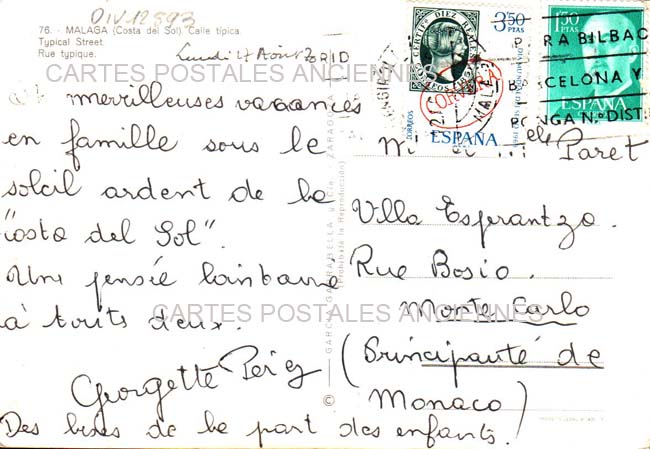 OIV12893
76. - MALAGA (Costa del Sol) Calle típica.
Typical Street.
Rue typique.
Lundi Août
CARTES POSTALES ANCIENNES
merveilleuses vacances
en famille sous le
soleil ardent de la
"Costa del Sol".
Une pensée lointaine
à touts deux.
Georgette
Des bises de la part des enfants.
CARTES POSTALES ANCIENNES
GARCIA GARRABELLA y Cía. ZARAGOZA
(Prohibida la Reproducción)
©
SELLO
3'50 PTAS
CORREOS
ESPAÑA
1'50 PTAS
ESPAÑA
PARA BILBAO
BARCELONA Y
PONGA N.º DIST.
Paret
Villa Esperantza.
Rue Bosio.
Monte Carlo
(Principauté de
Monaco)